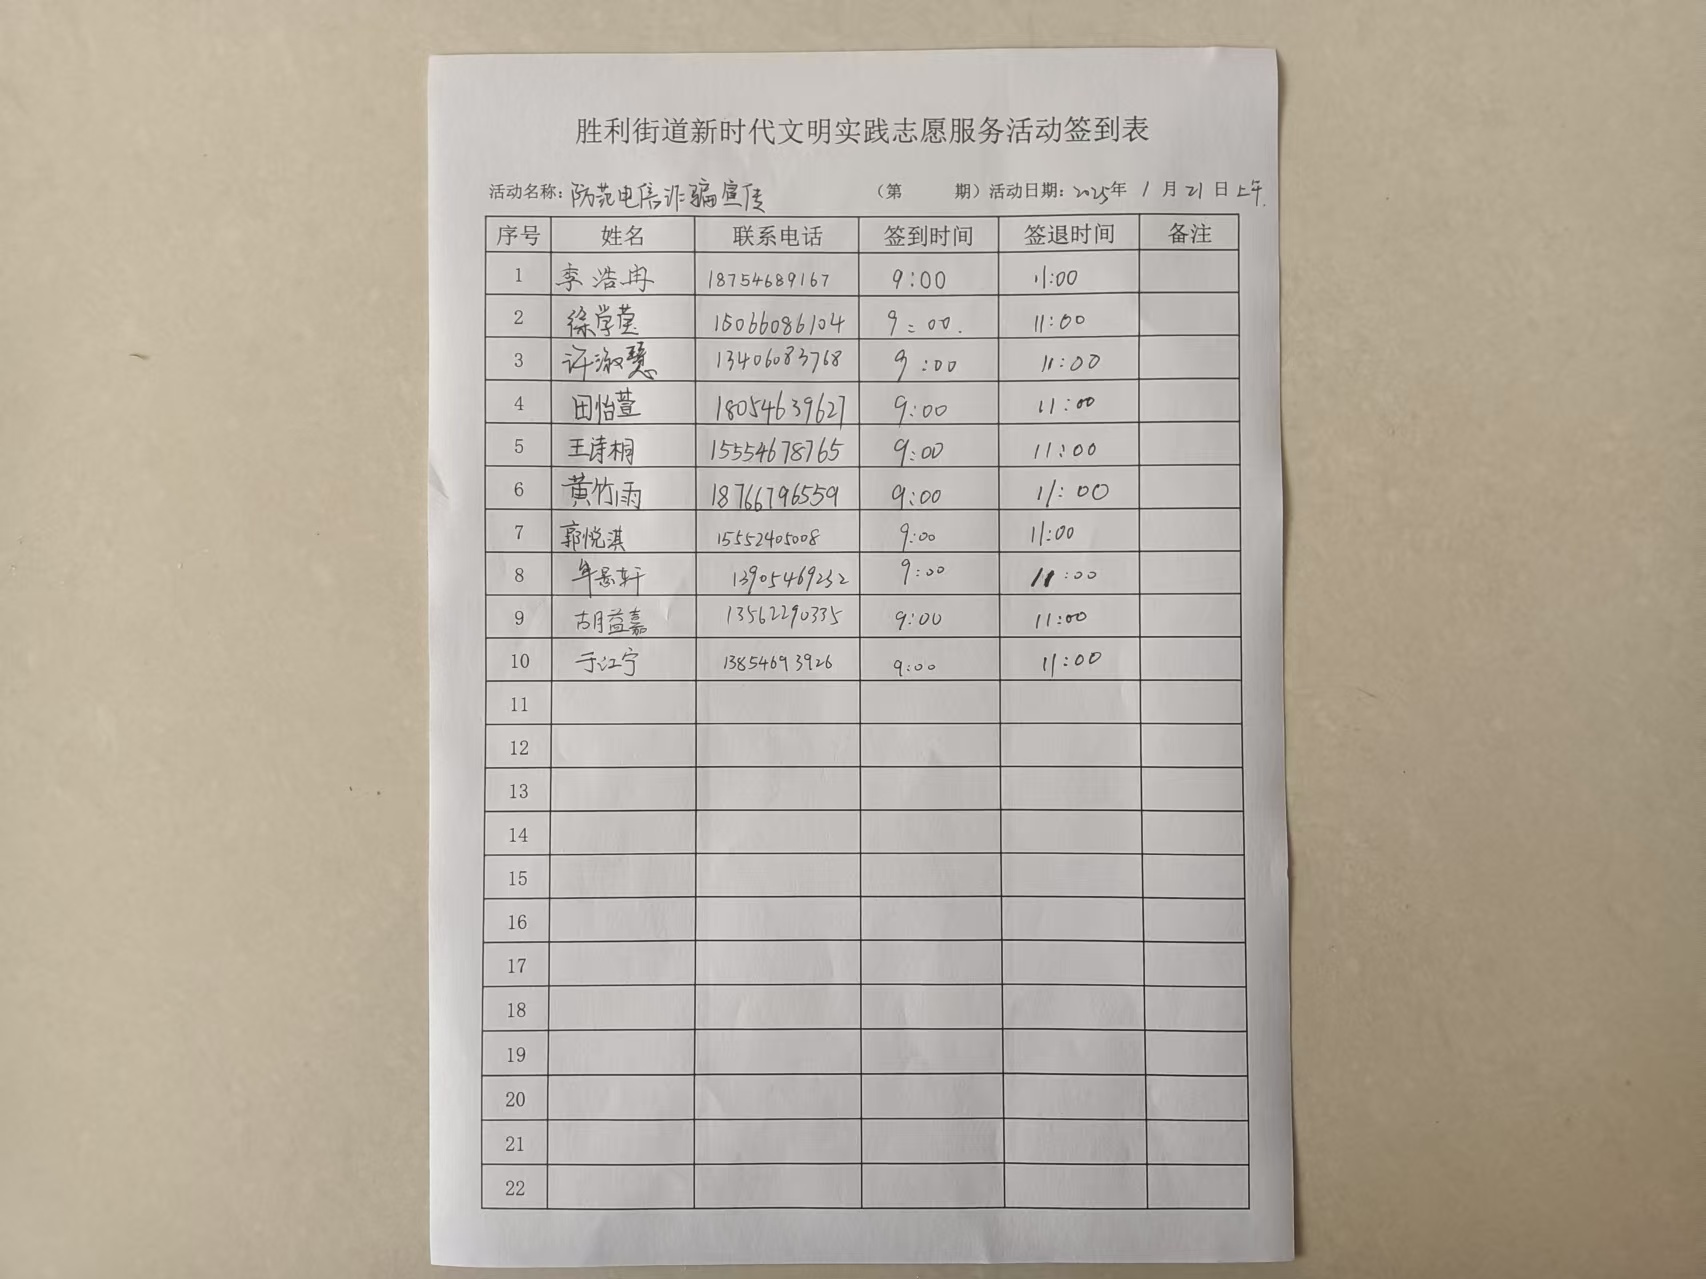 胜利街道新时代文明实践志愿服务活动签到表
活动名称：防范电信诈骗宣传 （第 期）活动日期：2025年 1 月 21 日 上午.
序号 姓名 联系电话 签到时间 签退时间 备注
1 李浩冉 18754689167 9:00 11:00
2 徐学莹 15066086104 9:00. 11:00
3 许淑慧 13406083768 9:00 11:00
4 田怡萱 18054639627 9:00 11:00
5 王诗桐 15554678765 9:00 11:00
6 黄竹雨 18766796559 9:00 11:00
7 郭悦淇 15552405008 9:00 11:00
8 13905469232 9:00 11:00
9 胡益嘉 13562290335 9:00 11:00
10 于江宁 13854693926 9:00 11:00
11
12
13
14
15
16
17
18
19
20
21
22